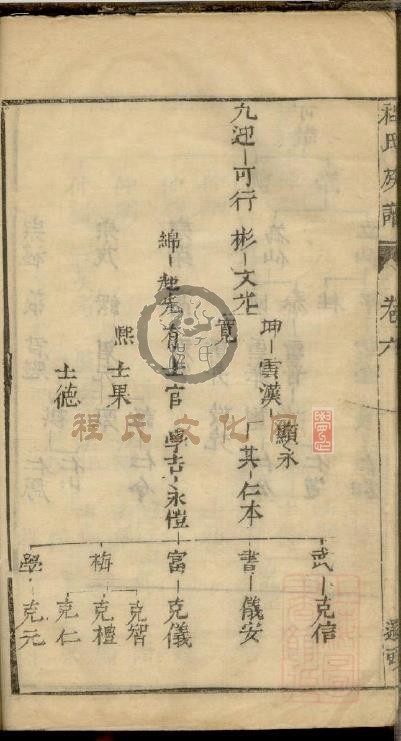 程氏族譜
卷六
坤 雲漢 顯永
武 克信
九迎 可行 彬 文光
寬
一其 仁本
書 儀安
綿 起先 有 士官 學吉 永愷 富 克儀
熙 士果
士德
梅 克智
克禮
克仁
學 克元
程氏文化网